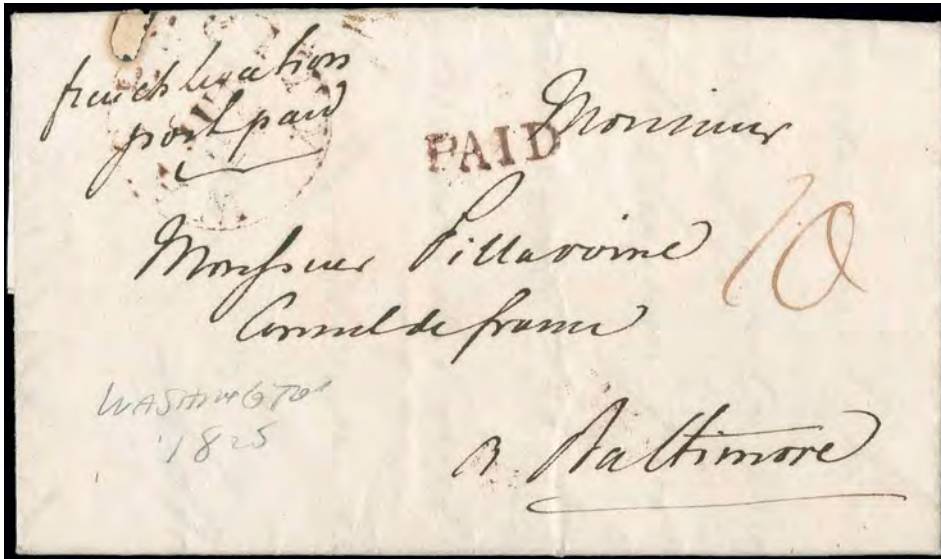 french legation
post paid
PAID
Monsieur
Monsieur Pillavoine
Consul de france
10
WASHINGTON
1825
a Baltimore